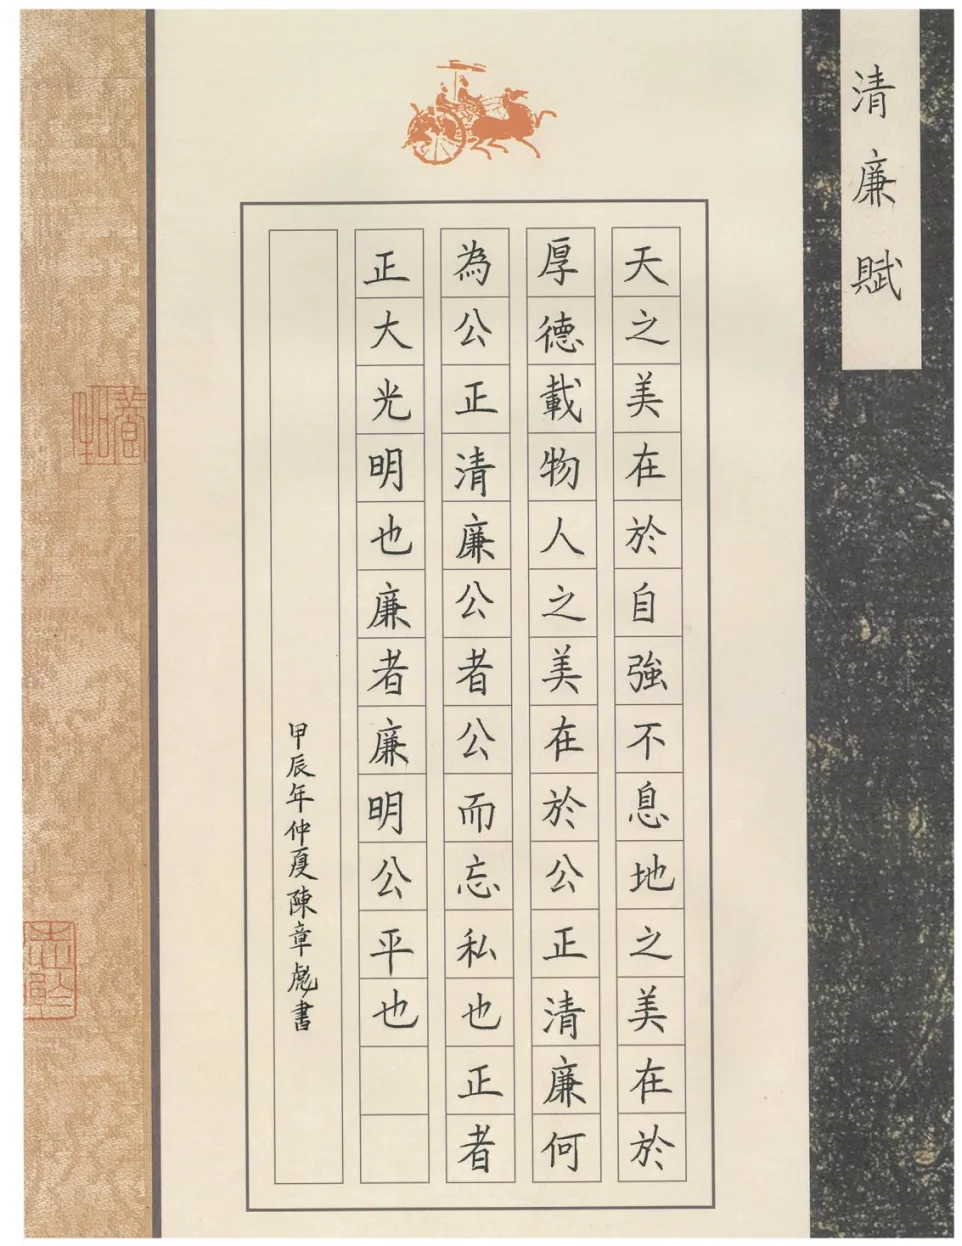 清廉賦
天之美在於自強不息地之美在於
厚德載物人之美在於公正清廉何
為公正清廉公者公而忘私也正者
正大光明也廉者廉明公平也
甲辰年仲夏陳章彪書